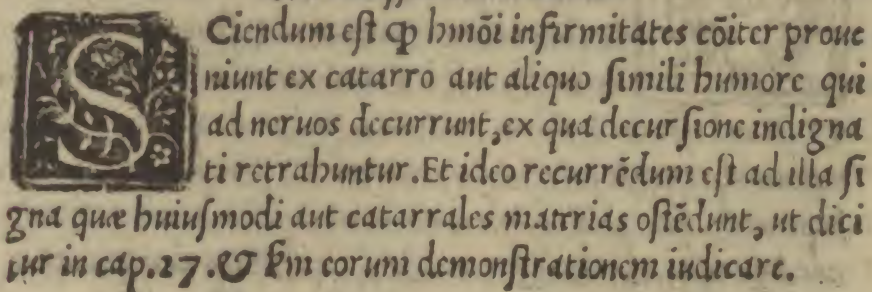 SCiendum eſt ꝙ hmõi infirmitates cõiter proue
niunt ex catarro aut aliquo ſimili humore qui
ad neruos decurrunt, ex qua decurſione indigna
ti retrahuntur. Et ideo recurrẽdum eſt ad illa ſi
gna quæ huiuſmodi aut catarrales materias oſtẽdunt, ut dici
tur in cap. 27. & ẜm eorum demonſtrationem iudicare.